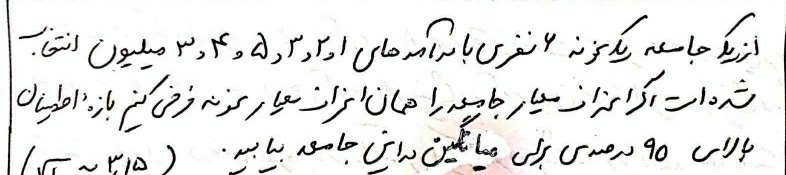 از یک جامعه یک نمونه ۶ نفری با درآمدهای ۱ و ۲ و ۳ و ۵ و ۴ و ۳ میلیون انتخاب
شده است اگر انحراف معیار جامعه را همان انحراف معیار نمونه فرض کنیم بازهٔ اطمینان
بالای ۹۵ درصدی برای میانگین در این جامعه بیابید. (